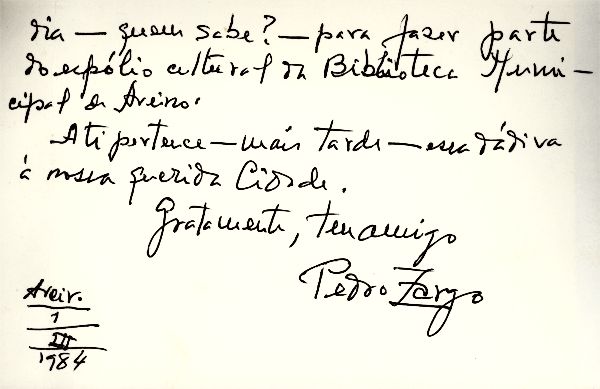 dia — quem sabe? — para fazer parte
do espólio cultural da Biblioteca Muni-
cipal de Aveiro.
A ti pertence — mais tarde — essa dádiva
à nossa querida Cidade.
Gratamente, teu amigo
Pedro Zargo
Aveir.
1
III
1984